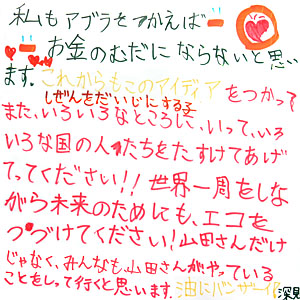 私もアブラをつかえば
お金のむだにならないと思い
ます。これからもこのアイディア
しぜんをだいじにする子
をつかって
また、いろいろなところに、いって、いろ
いろな国の人たちをたすけてあげ
てってください!!世界一周をしな
がら未来のためにも、エコを
つづけてください!山田さんだけ
じゃなく、みんなも、山田さんがやっている
ことをして行くと思います。油にバンザーイ
深見